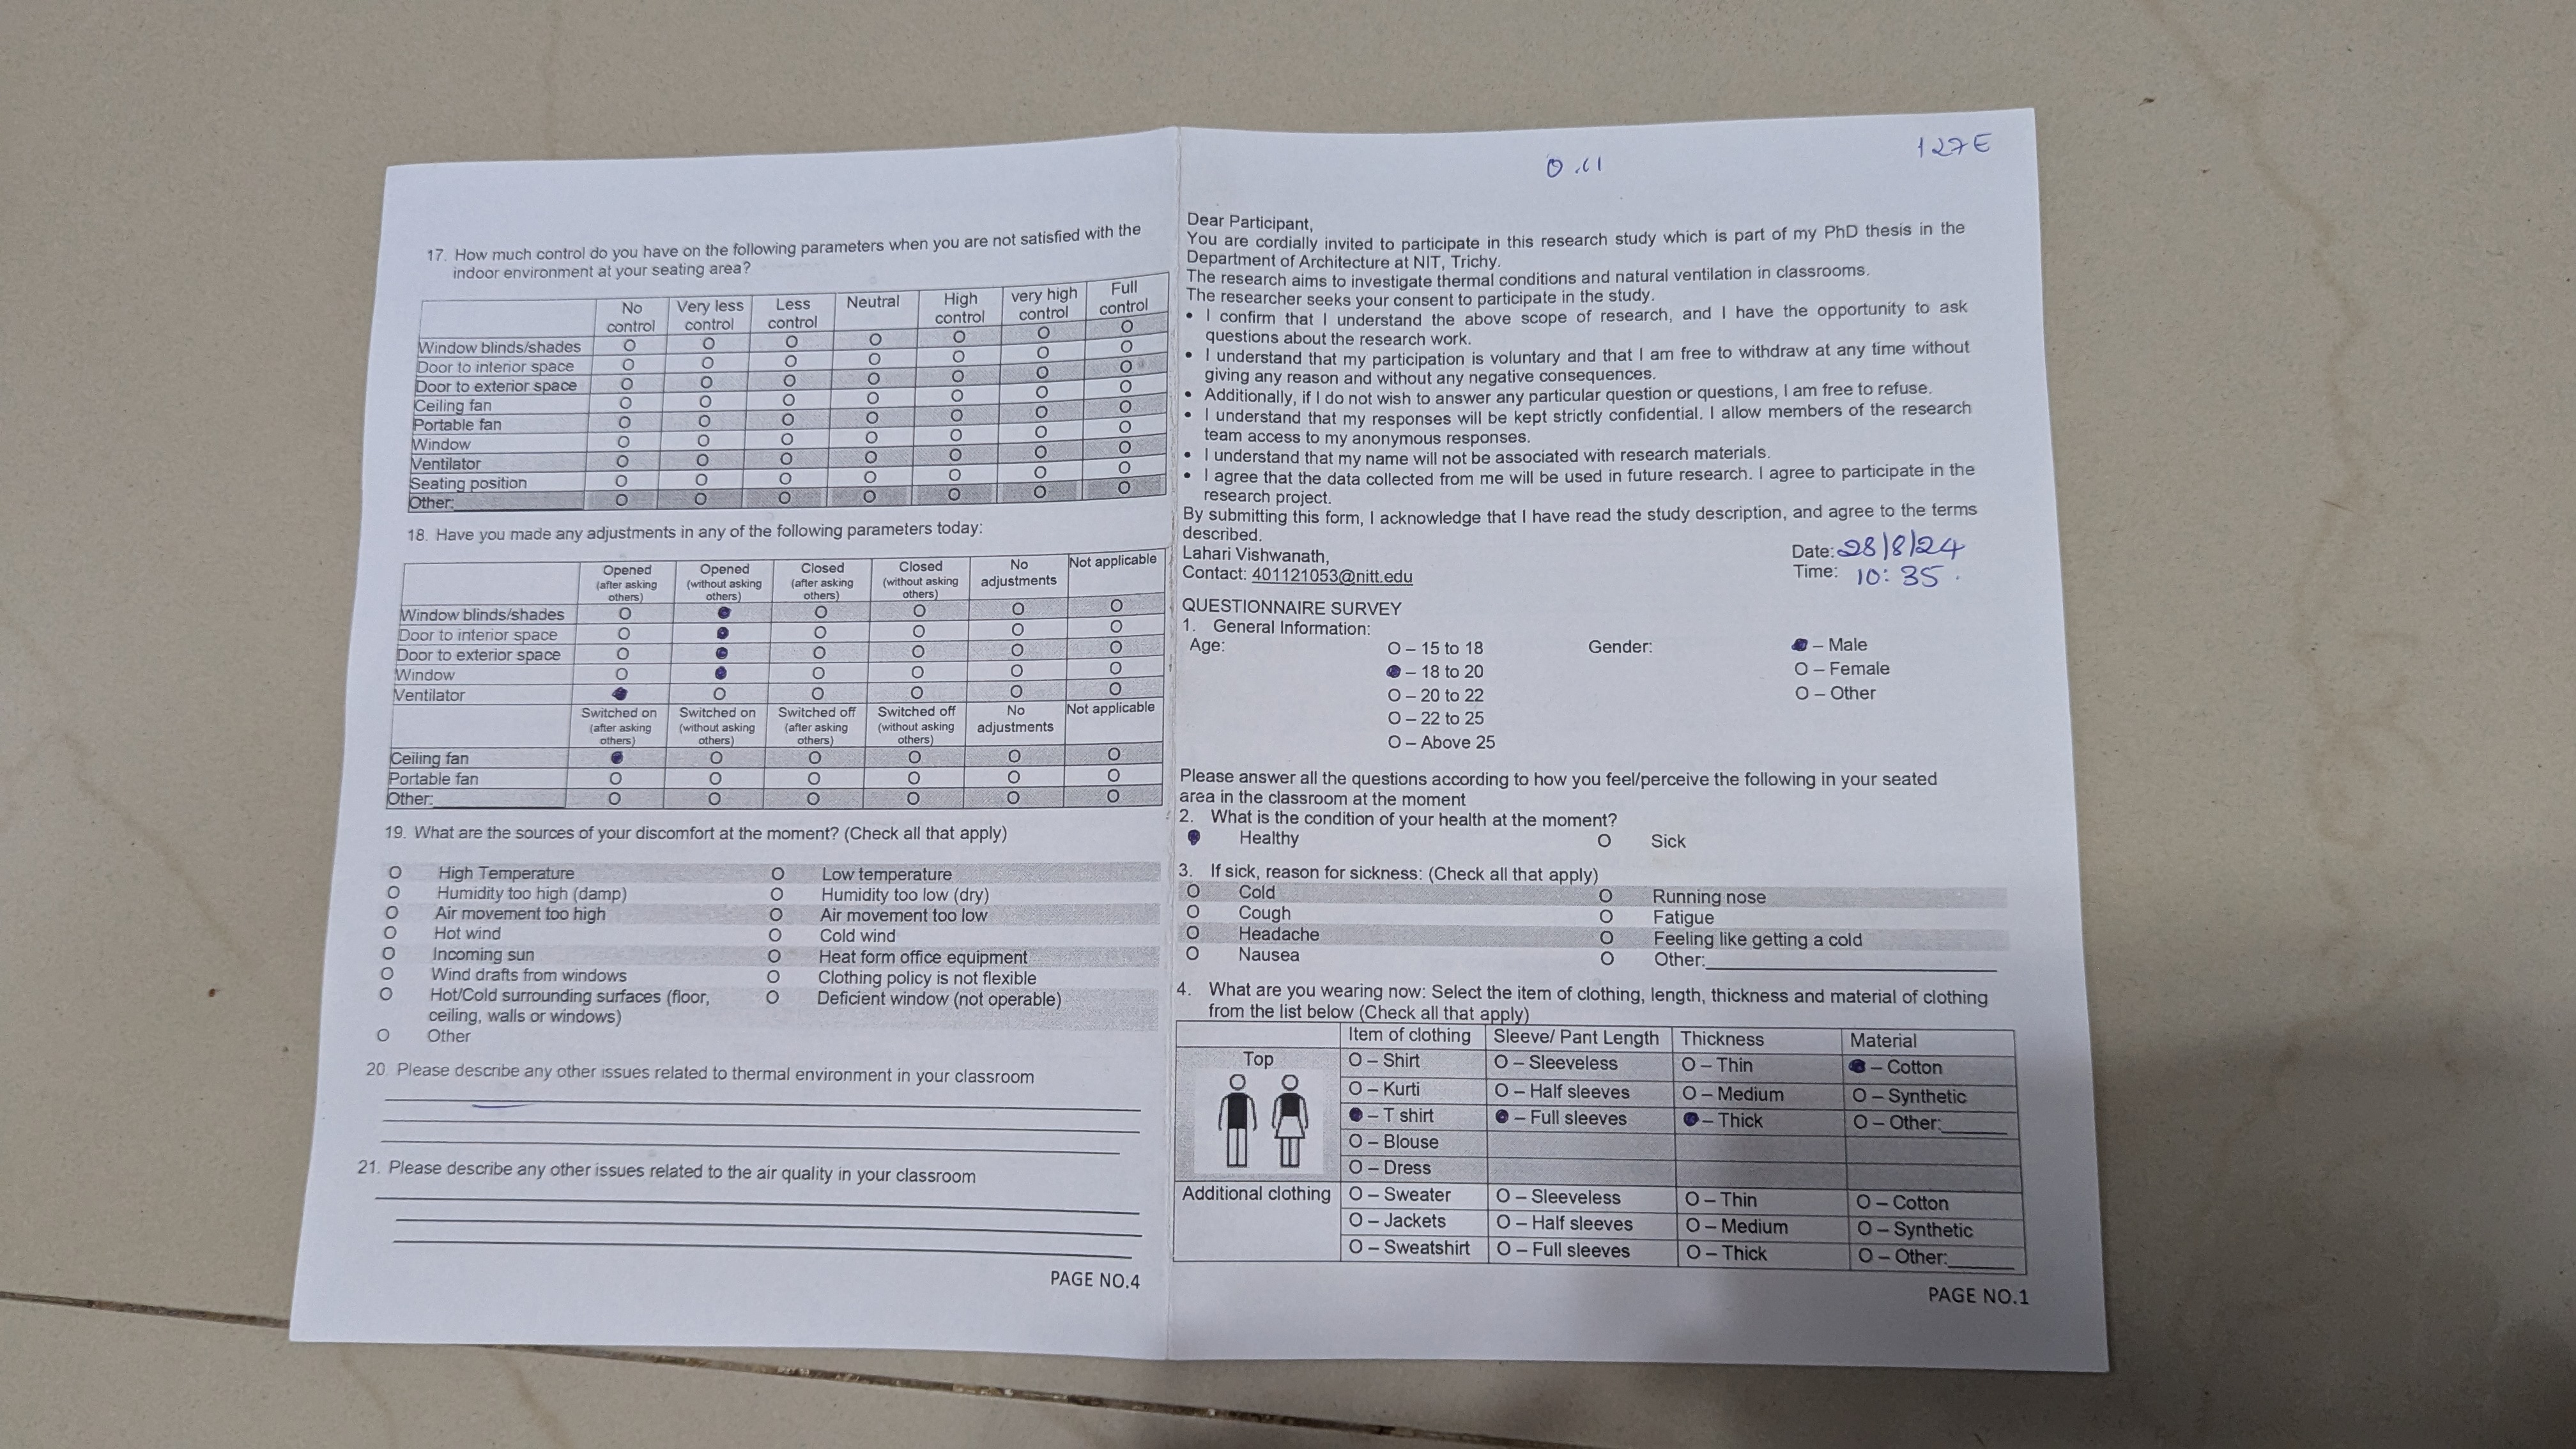 17. How much control do you have on the following parameters when you are not satisfied with the
indoor environment at your seating area?
No control Very less control Less control Neutral High control very high control Full control
Window blinds/shades O O O O O O O
Door to interior space O O O O O O O
Door to exterior space O O O O O O O
Ceiling fan O O O O O O O
Portable fan O O O O O O O
Window O O O O O O O
Ventilator O O O O O O O
Seating position O O O O O O O
Other: O O O O O O O
18. Have you made any adjustments in any of the following parameters today:
Opened (after asking others) Opened (without asking others) Closed (after asking others) Closed (without asking others) No adjustments Not applicable
Window blinds/shades O ● O O O O
Door to interior space O ● O O O O
Door to exterior space O ● O O O O
Window O ● O O O O
Ventilator ● O O O O O
Switched on (after asking others) Switched on (without asking others) Switched off (after asking others) Switched off (without asking others) No adjustments Not applicable
Ceiling fan ● O O O O O
Portable fan O O O O O O
Other: O O O O O O
19. What are the sources of your discomfort at the moment? (Check all that apply)
O High Temperature O Low temperature
O Humidity too high (damp) O Humidity too low (dry)
O Air movement too high O Air movement too low
O Hot wind O Cold wind
O Incoming sun O Heat form office equipment
O Wind drafts from windows O Clothing policy is not flexible
O Hot/Cold surrounding surfaces (floor, O Deficient window (not operable)
ceiling, walls or windows)
O Other
20. Please describe any other issues related to thermal environment in your classroom
21. Please describe any other issues related to the air quality in your classroom
PAGE NO.4
127E
Dear Participant,
You are cordially invited to participate in this research study which is part of my PhD thesis in the
Department of Architecture at NIT, Trichy.
The research aims to investigate thermal conditions and natural ventilation in classrooms.
The researcher seeks your consent to participate in the study.
• I confirm that I understand the above scope of research, and I have the opportunity to ask
questions about the research work.
• I understand that my participation is voluntary and that I am free to withdraw at any time without
giving any reason and without any negative consequences.
• Additionally, if I do not wish to answer any particular question or questions, I am free to refuse.
• I understand that my responses will be kept strictly confidential. I allow members of the research
team access to my anonymous responses.
• I understand that my name will not be associated with research materials.
• I agree that the data collected from me will be used in future research. I agree to participate in the
research project.
By submitting this form, I acknowledge that I have read the study description, and agree to the terms
described.
Lahari Vishwanath, Date: 28/8/24
Contact: 401121053@nitt.edu Time: 10:35
QUESTIONNAIRE SURVEY
1. General Information:
Age: O – 15 to 18 Gender: ● – Male
● – 18 to 20 O – Female
O – 20 to 22 O – Other
O – 22 to 25
O – Above 25
Please answer all the questions according to how you feel/perceive the following in your seated
area in the classroom at the moment
2. What is the condition of your health at the moment?
● Healthy O Sick
3. If sick, reason for sickness: (Check all that apply)
O Cold O Running nose
O Cough O Fatigue
O Headache O Feeling like getting a cold
O Nausea O Other:
4. What are you wearing now: Select the item of clothing, length, thickness and material of clothing
from the list below (Check all that apply)
Item of clothing Sleeve/ Pant Length Thickness Material
Top O – Shirt O – Sleeveless O – Thin ● – Cotton
O – Kurti O – Half sleeves O – Medium O – Synthetic
● – T shirt ● – Full sleeves ● – Thick O – Other:
O – Blouse
O – Dress
Additional clothing O – Sweater O – Sleeveless O – Thin O – Cotton
O – Jackets O – Half sleeves O – Medium O – Synthetic
O – Sweatshirt O – Full sleeves O – Thick O – Other:
PAGE NO.1